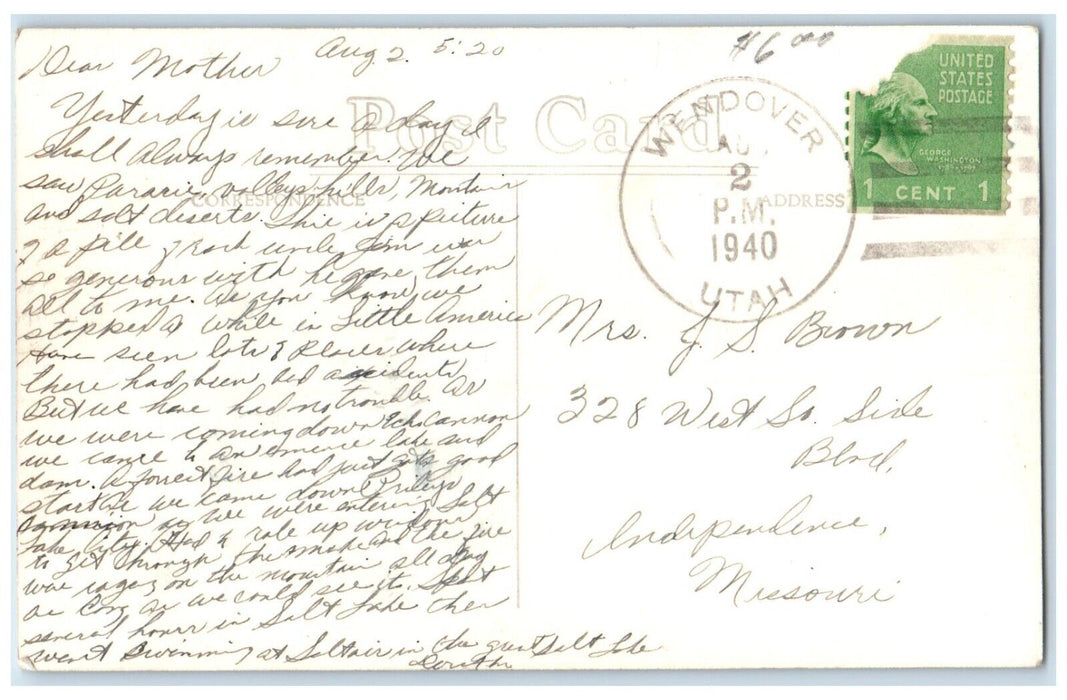 Dear Mother Aug 2. 5:20
$6.00
Post Card
CORRESPONDENCE
ADDRESS
WENDOVER
AU
2
P.M.
1940
UTAH
UNITED
STATES
POSTAGE
GEORGE
WASHINGTON
1 CENT 1
Yesterday is sure a day I
shall always remember. We
saw valleys, hills,
and salt deserts. This is a picture
of a pile of rock uncle Jim was
so generous with he gave them
all to me. As you know we
stopped a while in Little America
Have seen lots of places where
there had been bad accidents
But we have had no trouble. As
we were coming down Echo
we came to an lake and
dam. A forrest fire had just got a good
start as we came down
as we were entering Salt
Lake City. Had to role up windows
to get through the smoke as the fire
was raging on the mountain all day
as long as we could see it. Spent
several hours in Salt Lake then
went swimming at Saltair in the great Salt Lake
Mrs. J. S. Brown
328 West So. Side
Blvd,
Independence,
Missouri